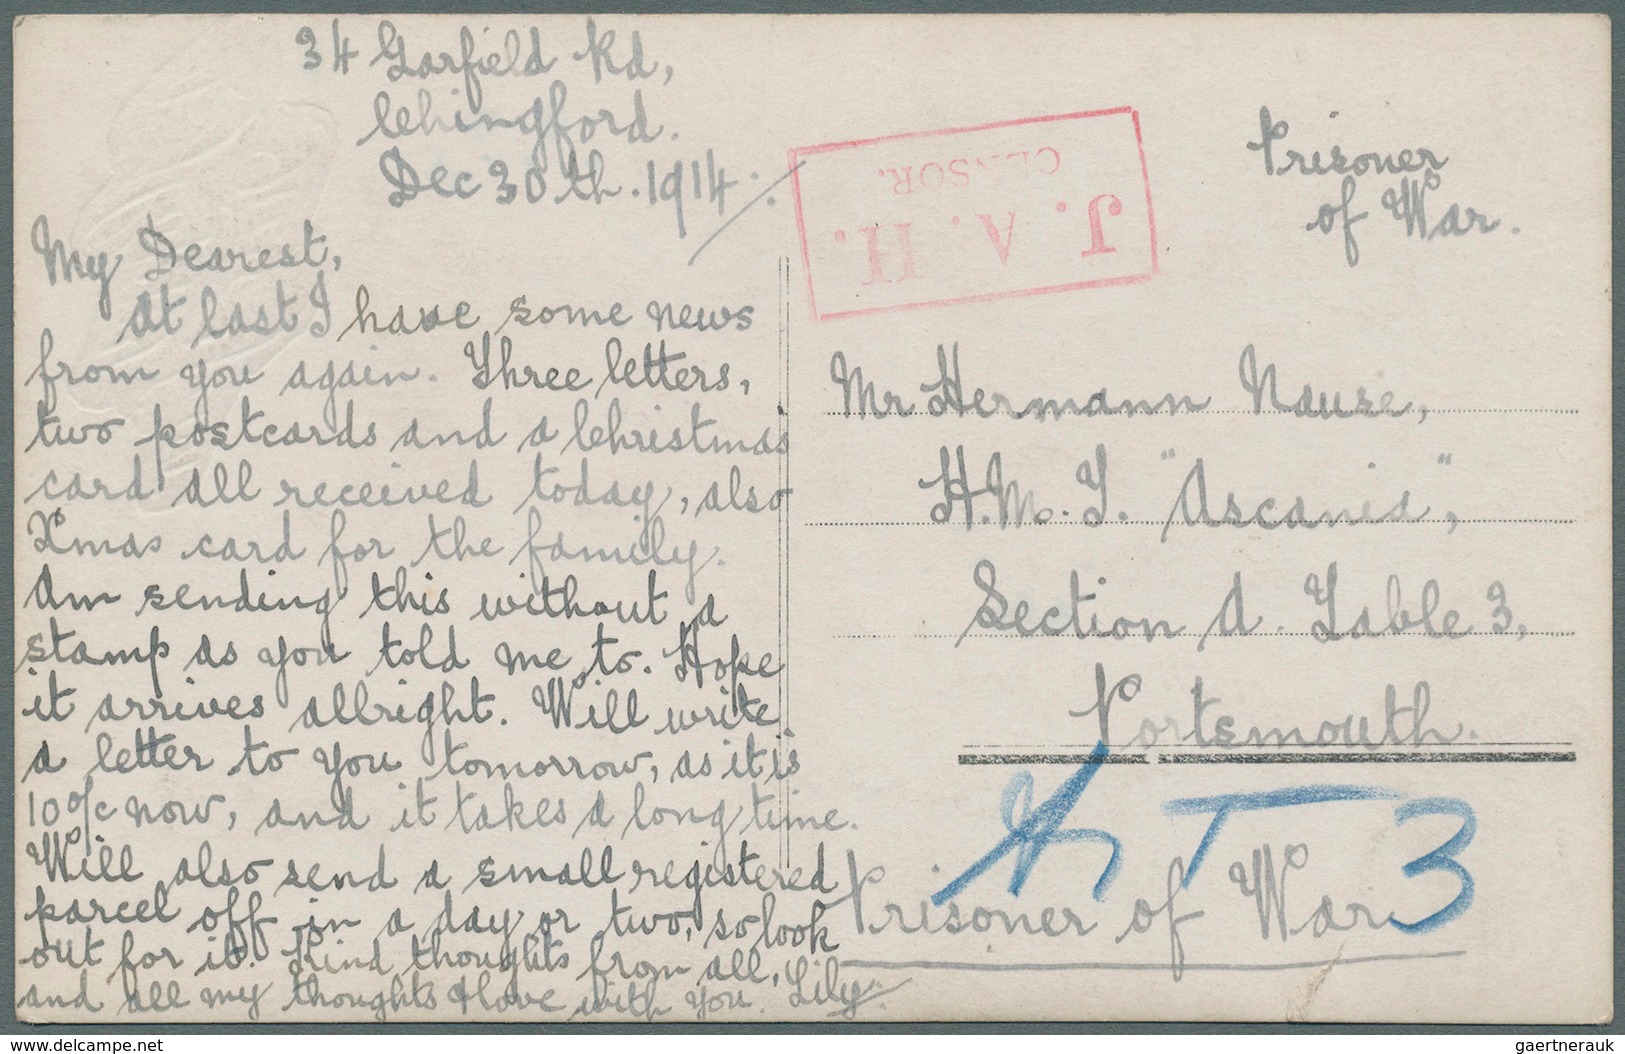 34 Garfield Rd,
Chingford.
Dec 30th. 1914.
My Dearest,
At last I have some news
from you again. Three letters,
two postcards and a Christmas
card all received today, also
Xmas card for the family.
Am sending this without a
stamp as you told me to. Hope
it arrives allright. Will write
a letter to you tomorrow, as it is
10 o/c now, and it takes a long time.
Will also send a small registered
parcel off in a day or two, so look
out for it. Kind thoughts from all,
and all my thoughts & love with you. Lily.
J. A. H.
CENSOR.
Prisoner
of War.
Mr Hermann Nauze,
H.M.T. "Ascania",
Section A. Table 3,
Portsmouth.
A T 3
Prisoner of War
www.delcampe.net
gaertnerauk